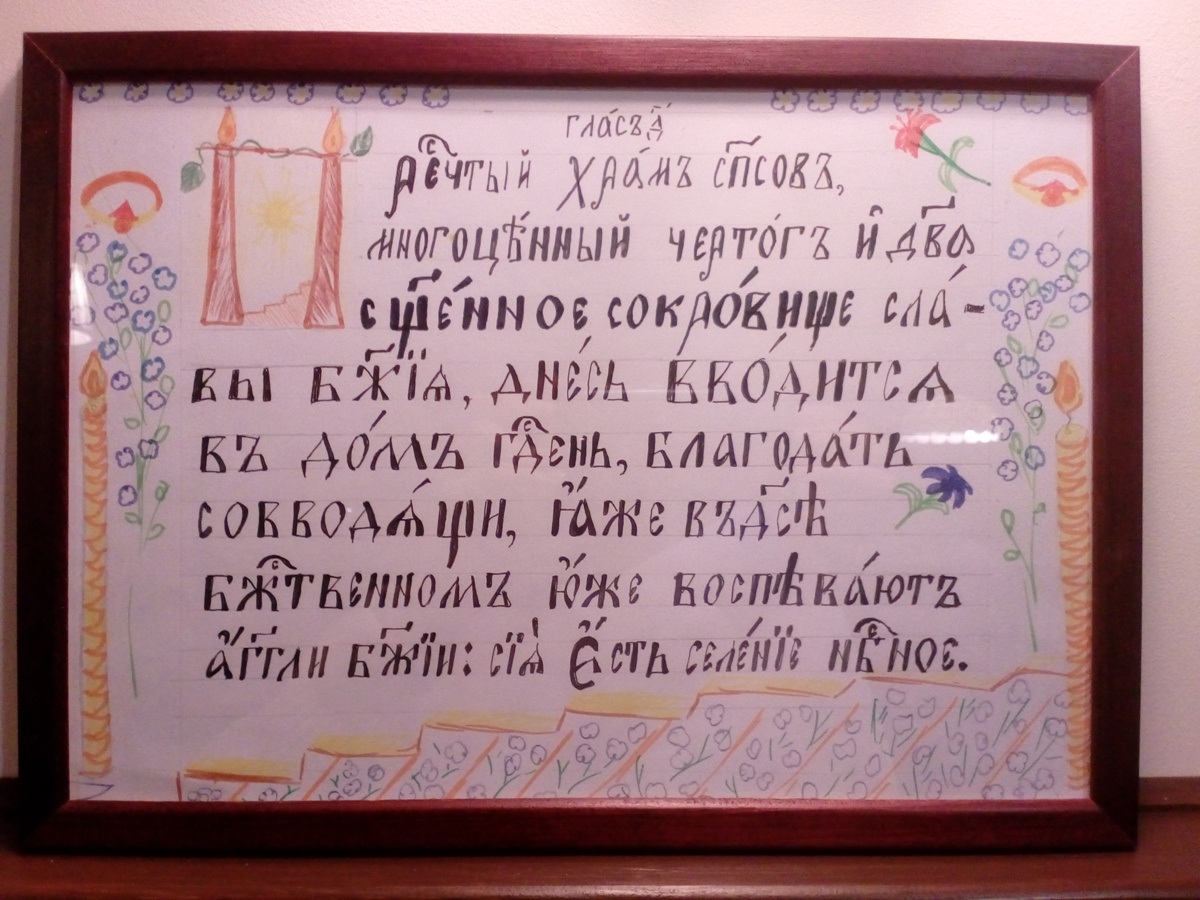 гла́съ д҃
Пречⷭ҇тый хра́мъ сп҃совъ,
многоцѣ́нный черто́гъ и҆ дв҃а
сщ҃е́нное сокро́вище сла́-
вы бж҃їѧ, дне́сь вво́дитсѧ
въ до́мъ гдⷭ҇ень, благода́ть
совводѧ́щи, ꙗ҆́же въ дс҃ѣ
бжⷭ҇твенномъ ю҆́же воспѣва́ютъ
а҆́гг҃ли бж҃їи: сїѧ̀ є҆́сть селе́нїе нбⷭ҇ное.